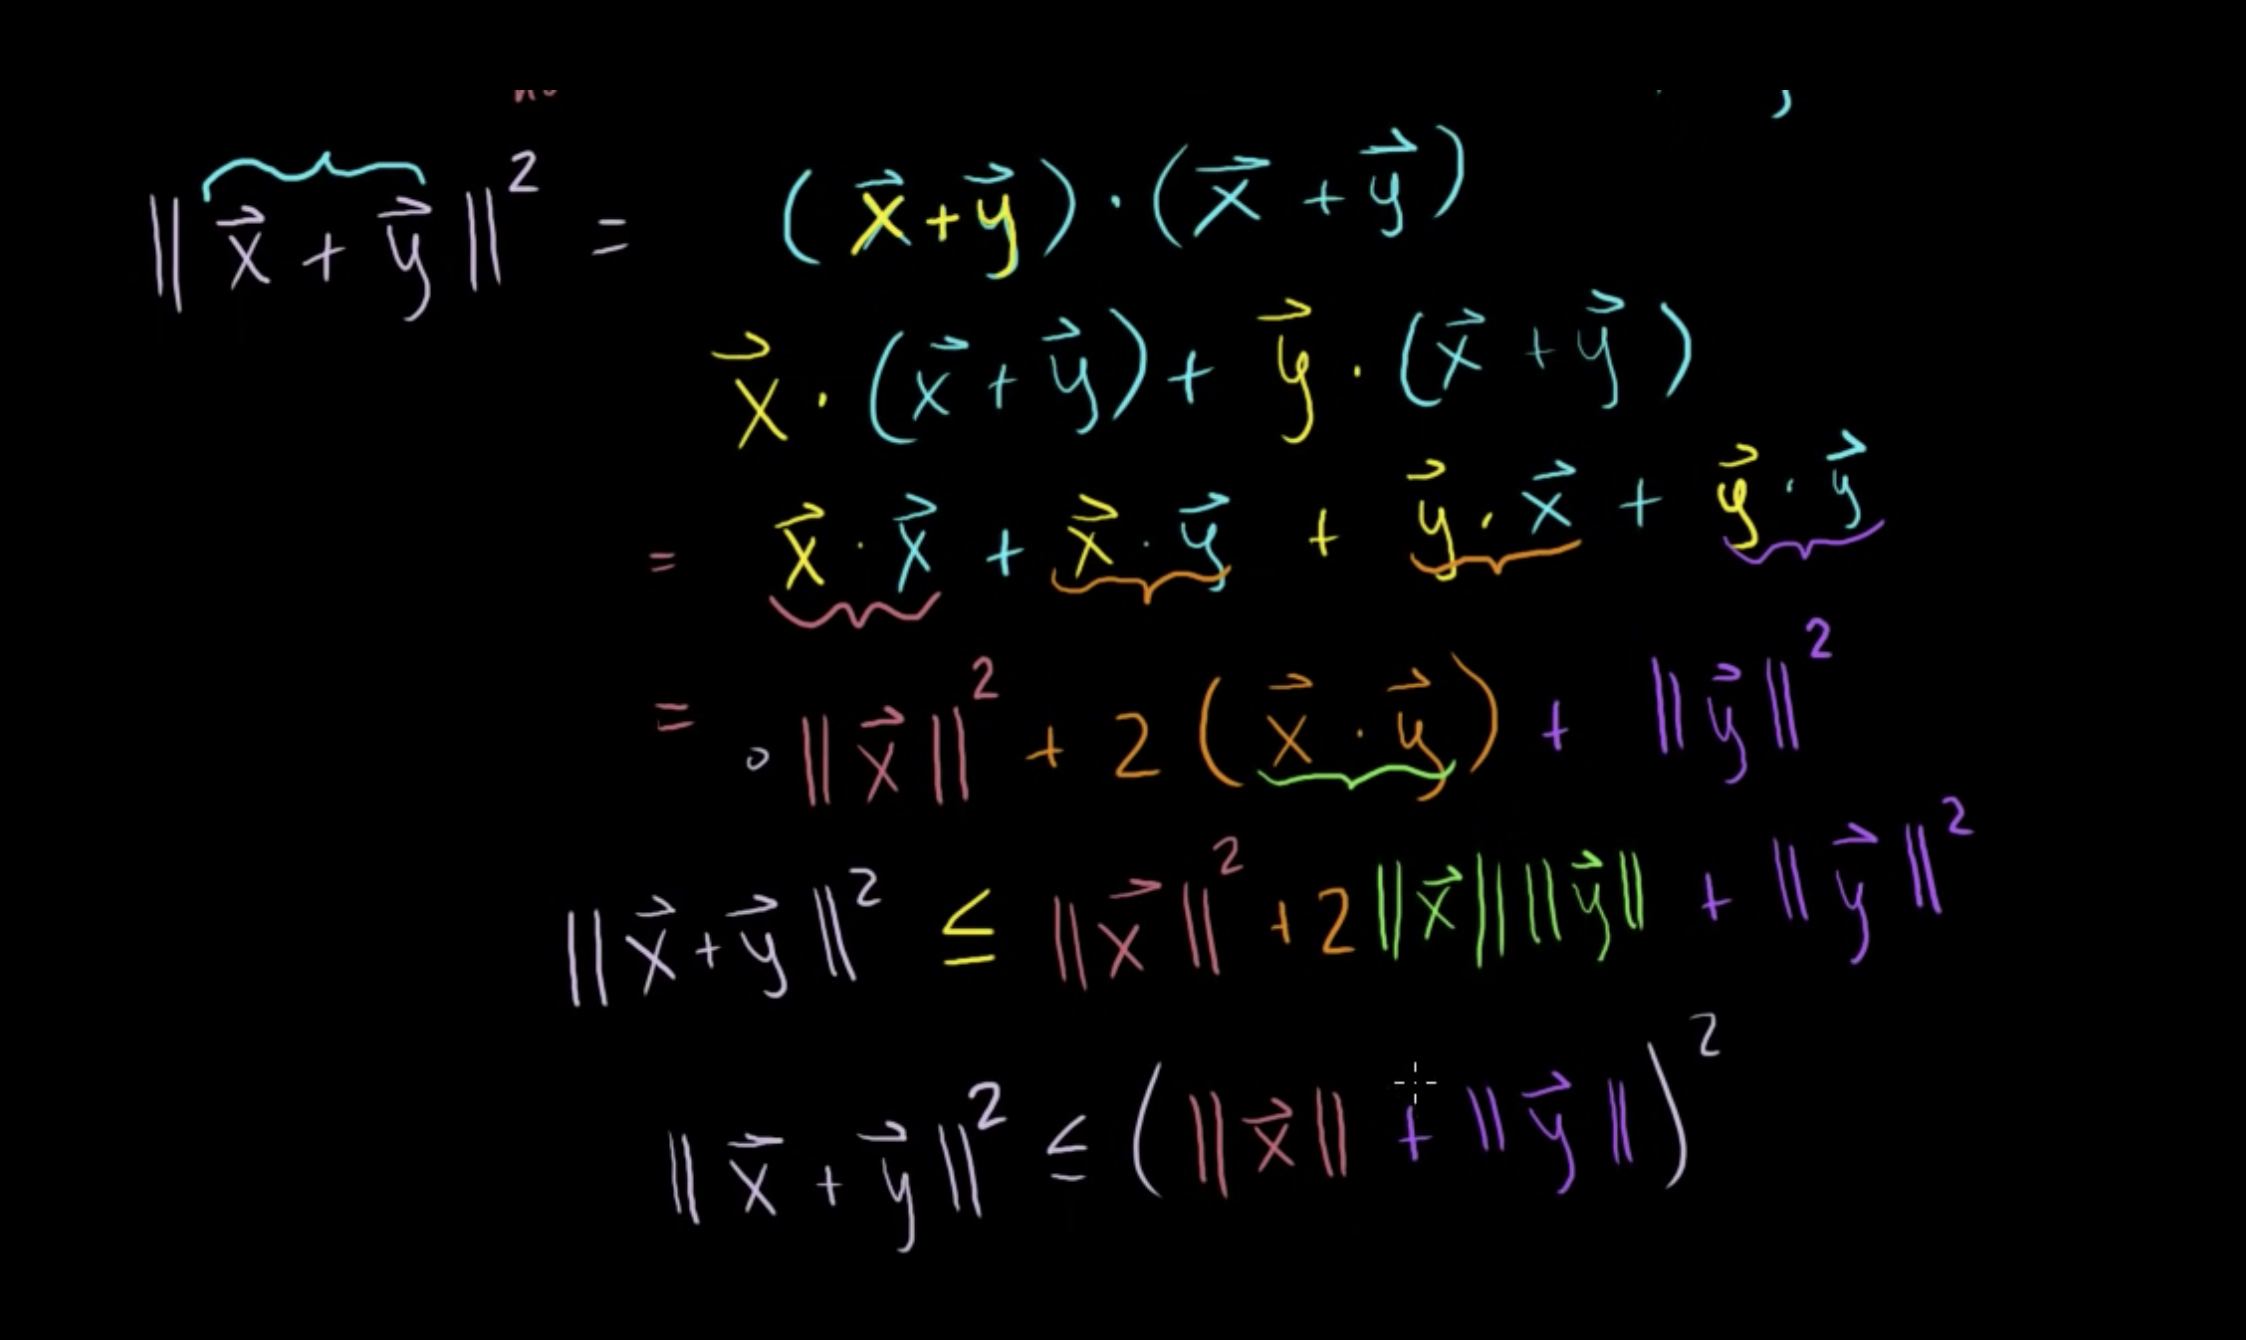 ‖x⃗ + y⃗‖² = (x⃗ + y⃗) · (x⃗ + y⃗)
x⃗ · (x⃗ + y⃗) + y⃗ · (x⃗ + y⃗)
= x⃗ · x⃗ + x⃗ · y⃗ + y⃗ · x⃗ + y⃗ · y⃗
= ‖x⃗‖² + 2 (x⃗ · y⃗) + ‖y⃗‖²
‖x⃗ + y⃗‖² ≤ ‖x⃗‖² + 2‖x⃗‖‖y⃗‖ + ‖y⃗‖²
‖x⃗ + y⃗‖² ≤ (‖x⃗‖ + ‖y⃗‖)²